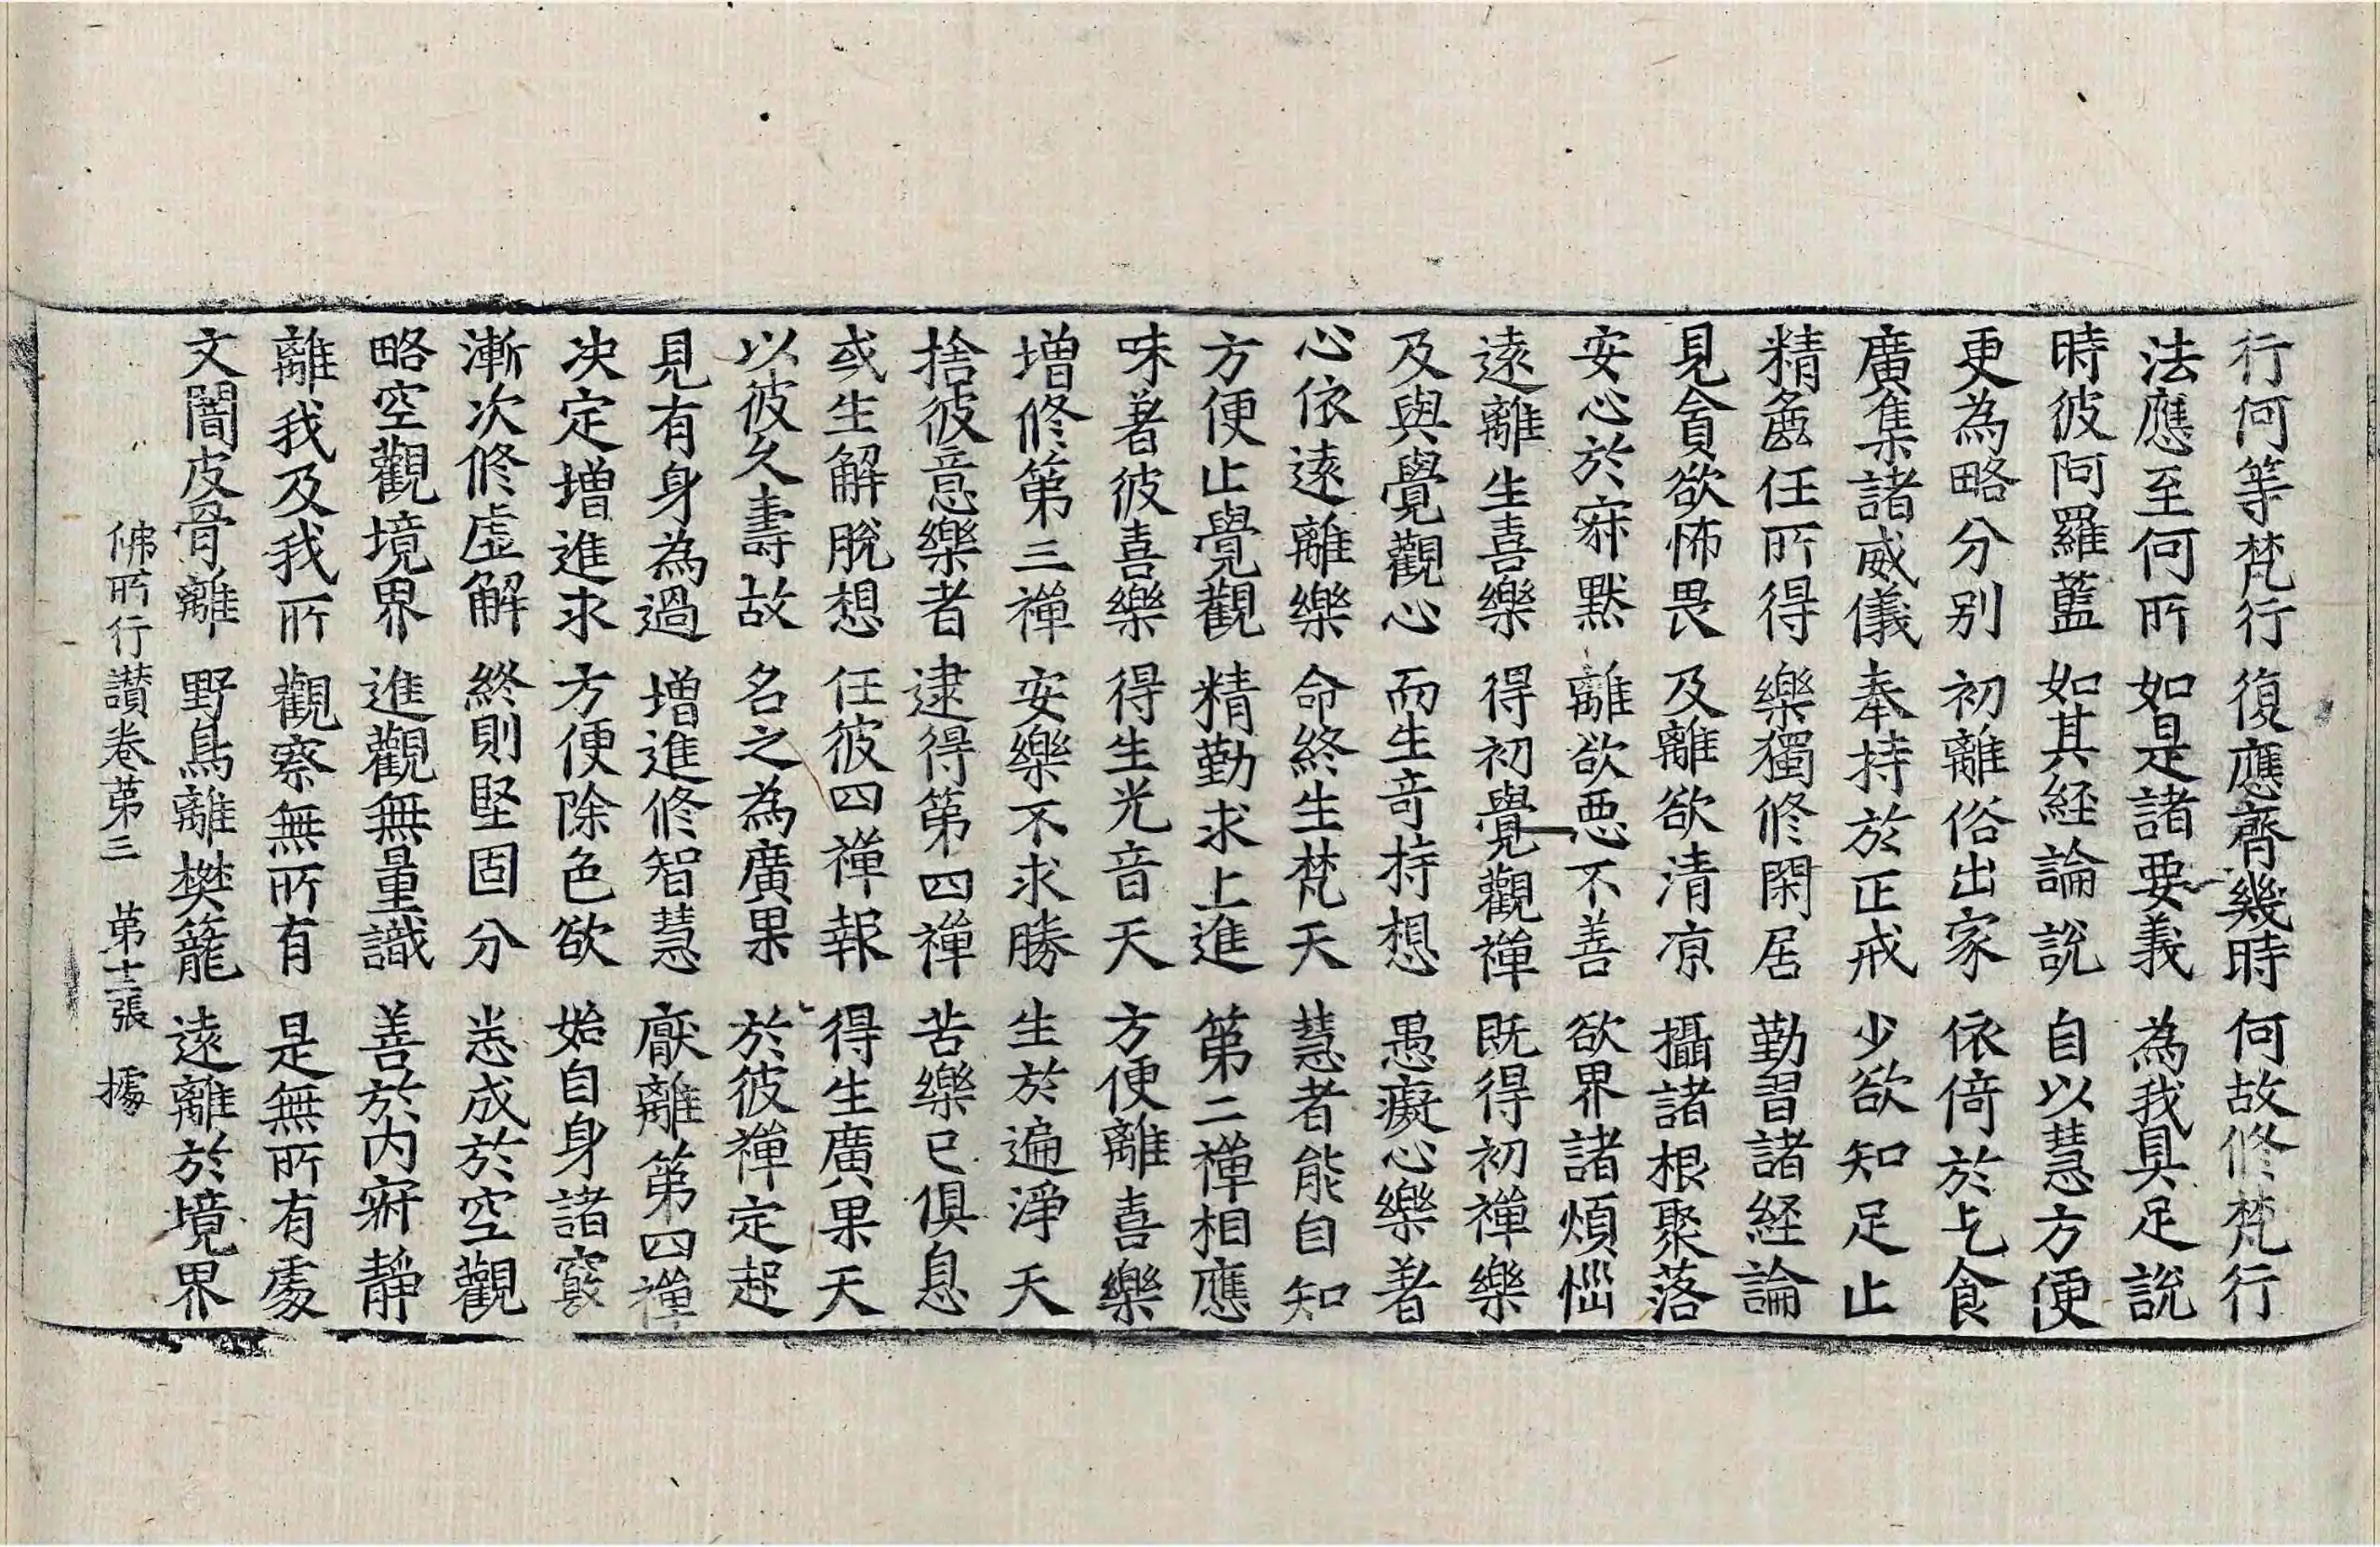 行何等梵行 復應齊幾時 何故修梵行
法應至何所 如是諸要義 為我具足說
時彼阿羅藍 如其經論說 自以慧方便
更為略分別 初離俗出家 依倚於乞食
廣集諸威儀 奉持於正戒 少欲知足止
精麁任所得 樂獨修閑居 勤習諸経論
見貪欲怖畏 及離欲清涼 攝諸根聚落
安心於寂默 離欲惡不善 欲界諸煩惱
遠離生喜樂 得初覺觀禪 既得初禪樂
及與覺觀心 而生奇特想 愚癡心樂著
心依遠離樂 命終生梵天 慧者能自知
方便止覺觀 精勤求上進 第二禪相應
味著彼喜樂 得生光音天 方便離喜樂
增修第三禪 安樂不求勝 生於遍淨天
捨彼意樂者 逮得第四禪 苦樂已俱息
或生解脫想 任彼四禪報 得生廣果天
以彼久壽故 名之為廣果 於彼禪定起
見有身為過 增進修智慧 厭離第四禪
決定增進求 方便除色欲 始自身諸竅
漸次修虛解 終則堅固分 悉成於空觀
略空觀境界 進觀無量識 善於內寂靜
離我及我所 觀察無所有 是無所有處
文闍皮骨離 野鳥離樊籠 遠離於境界
佛所行讚卷第三 第十二張 據